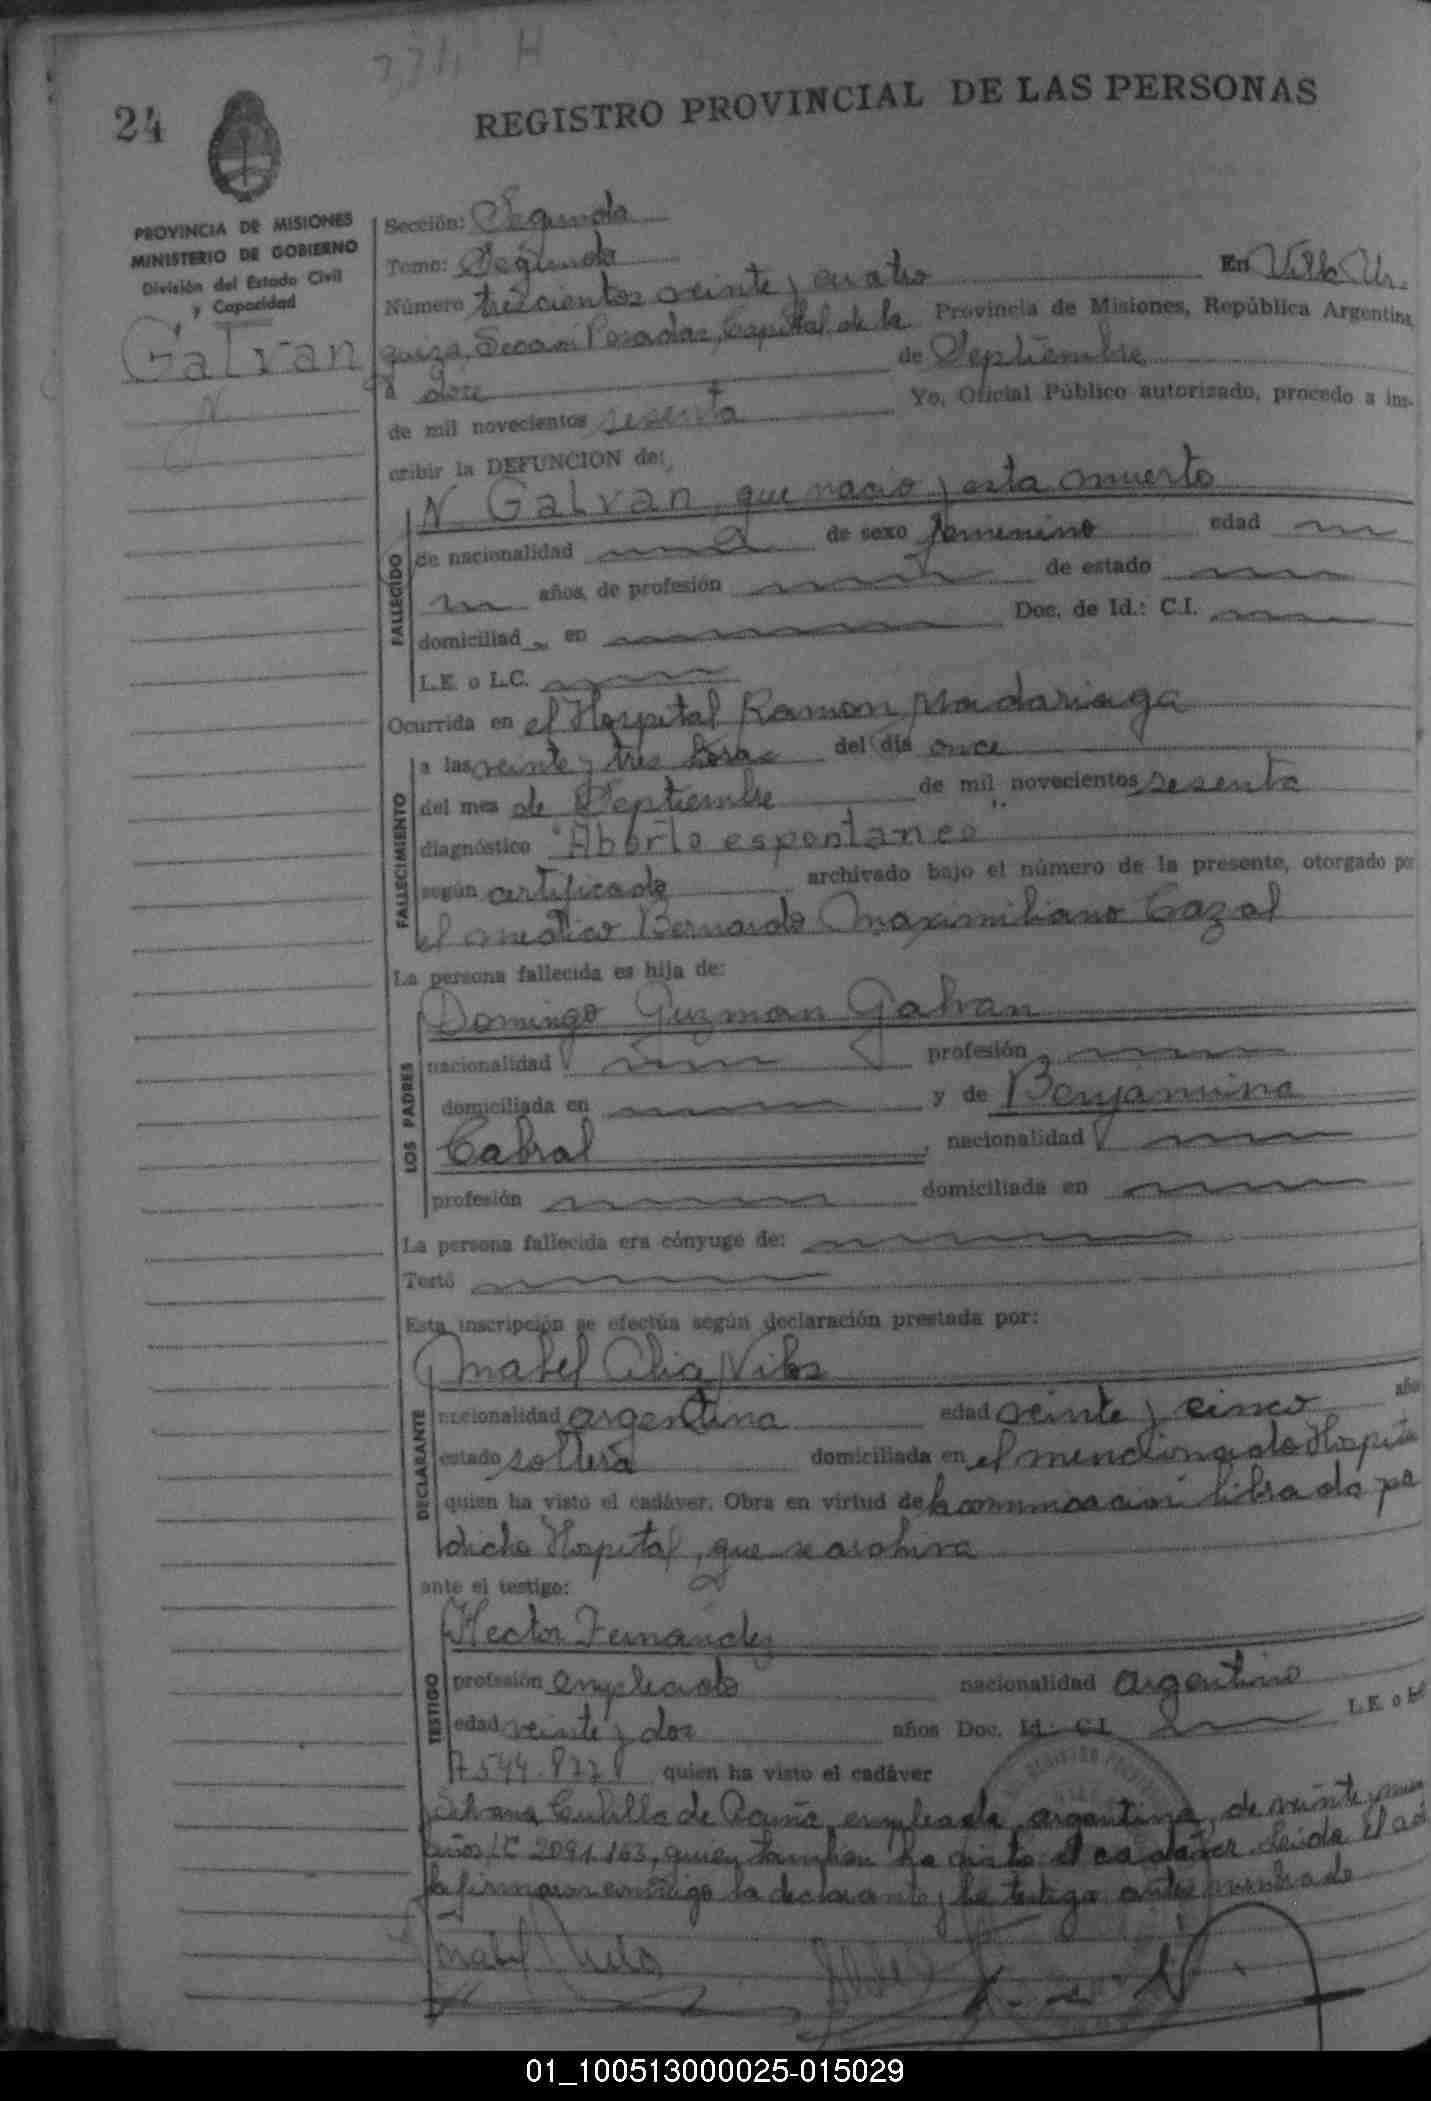 324 H
24
REGISTRO PROVINCIAL DE LAS PERSONAS
PROVINCIA DE MISIONES
MINISTERIO DE GOBIERNO
División del Estado Civil
y Capacidad
Galvan
N
Sección: Segunda
Tomo: Segundo
Número trescientos veinte y cuatro En Villa Ur
quiza, Secan Posadas, Capital de la Provincia de Misiones, República Argentina,
a doce de Septiembre
de mil novecientos sesenta Yo, Oficial Público autorizado, procedo a ins-
cribir la DEFUNCION de:
N Galvan, que nacio y esta muerto
FALLECIDO
de nacionalidad de sexo femenino edad
años, de profesión de estado
domiciliad en Doc. de Id.: C.I.
L.E. o L.C.
Ocurrida en el Hospital Ramon Madariaga
FALLECIMIENTO
a las veinte y tres horas del día once
del mes de Septiembre de mil novecientos sesenta
diagnóstico "Aborto espontaneo"
según certificado archivado bajo el número de la presente, otorgado por
el medico Bernardo Maximiliano Cazal
La persona fallecida es hija de:
LOS PADRES
Domingo Guzman Galvan
nacionalidad profesión
domiciliada en y de Benjamina
Cabral, nacionalidad
profesión domiciliada en
La persona fallecida era cónyuge de:
Testó
Esta inscripción se efectúa según declaración prestada por:
DECLARANTE
Mabel
nacionalidad argentina edad veinte y cinco año
estado soltera domiciliada en el mencionado Hospita
quien ha visto el cadáver. Obra en virtud de la comunicacion librada po
dicho Hospital, que se archiva
ante el testigo:
TESTIGO
Hector Fernandez
profesión empleado nacionalidad argentino
edad veinte y dos años Doc. Id.: C.I. L.E. o
7.544.977 quien ha visto el cadáver
de Acuña, empleada, argentina, de veinte y
años LC 2091163, quien tambien ha visto el cadaver. Leida el ac
la firmaron conmigo la declarante y los testigo antes nombrado
Mabel
01_100513000025-015029